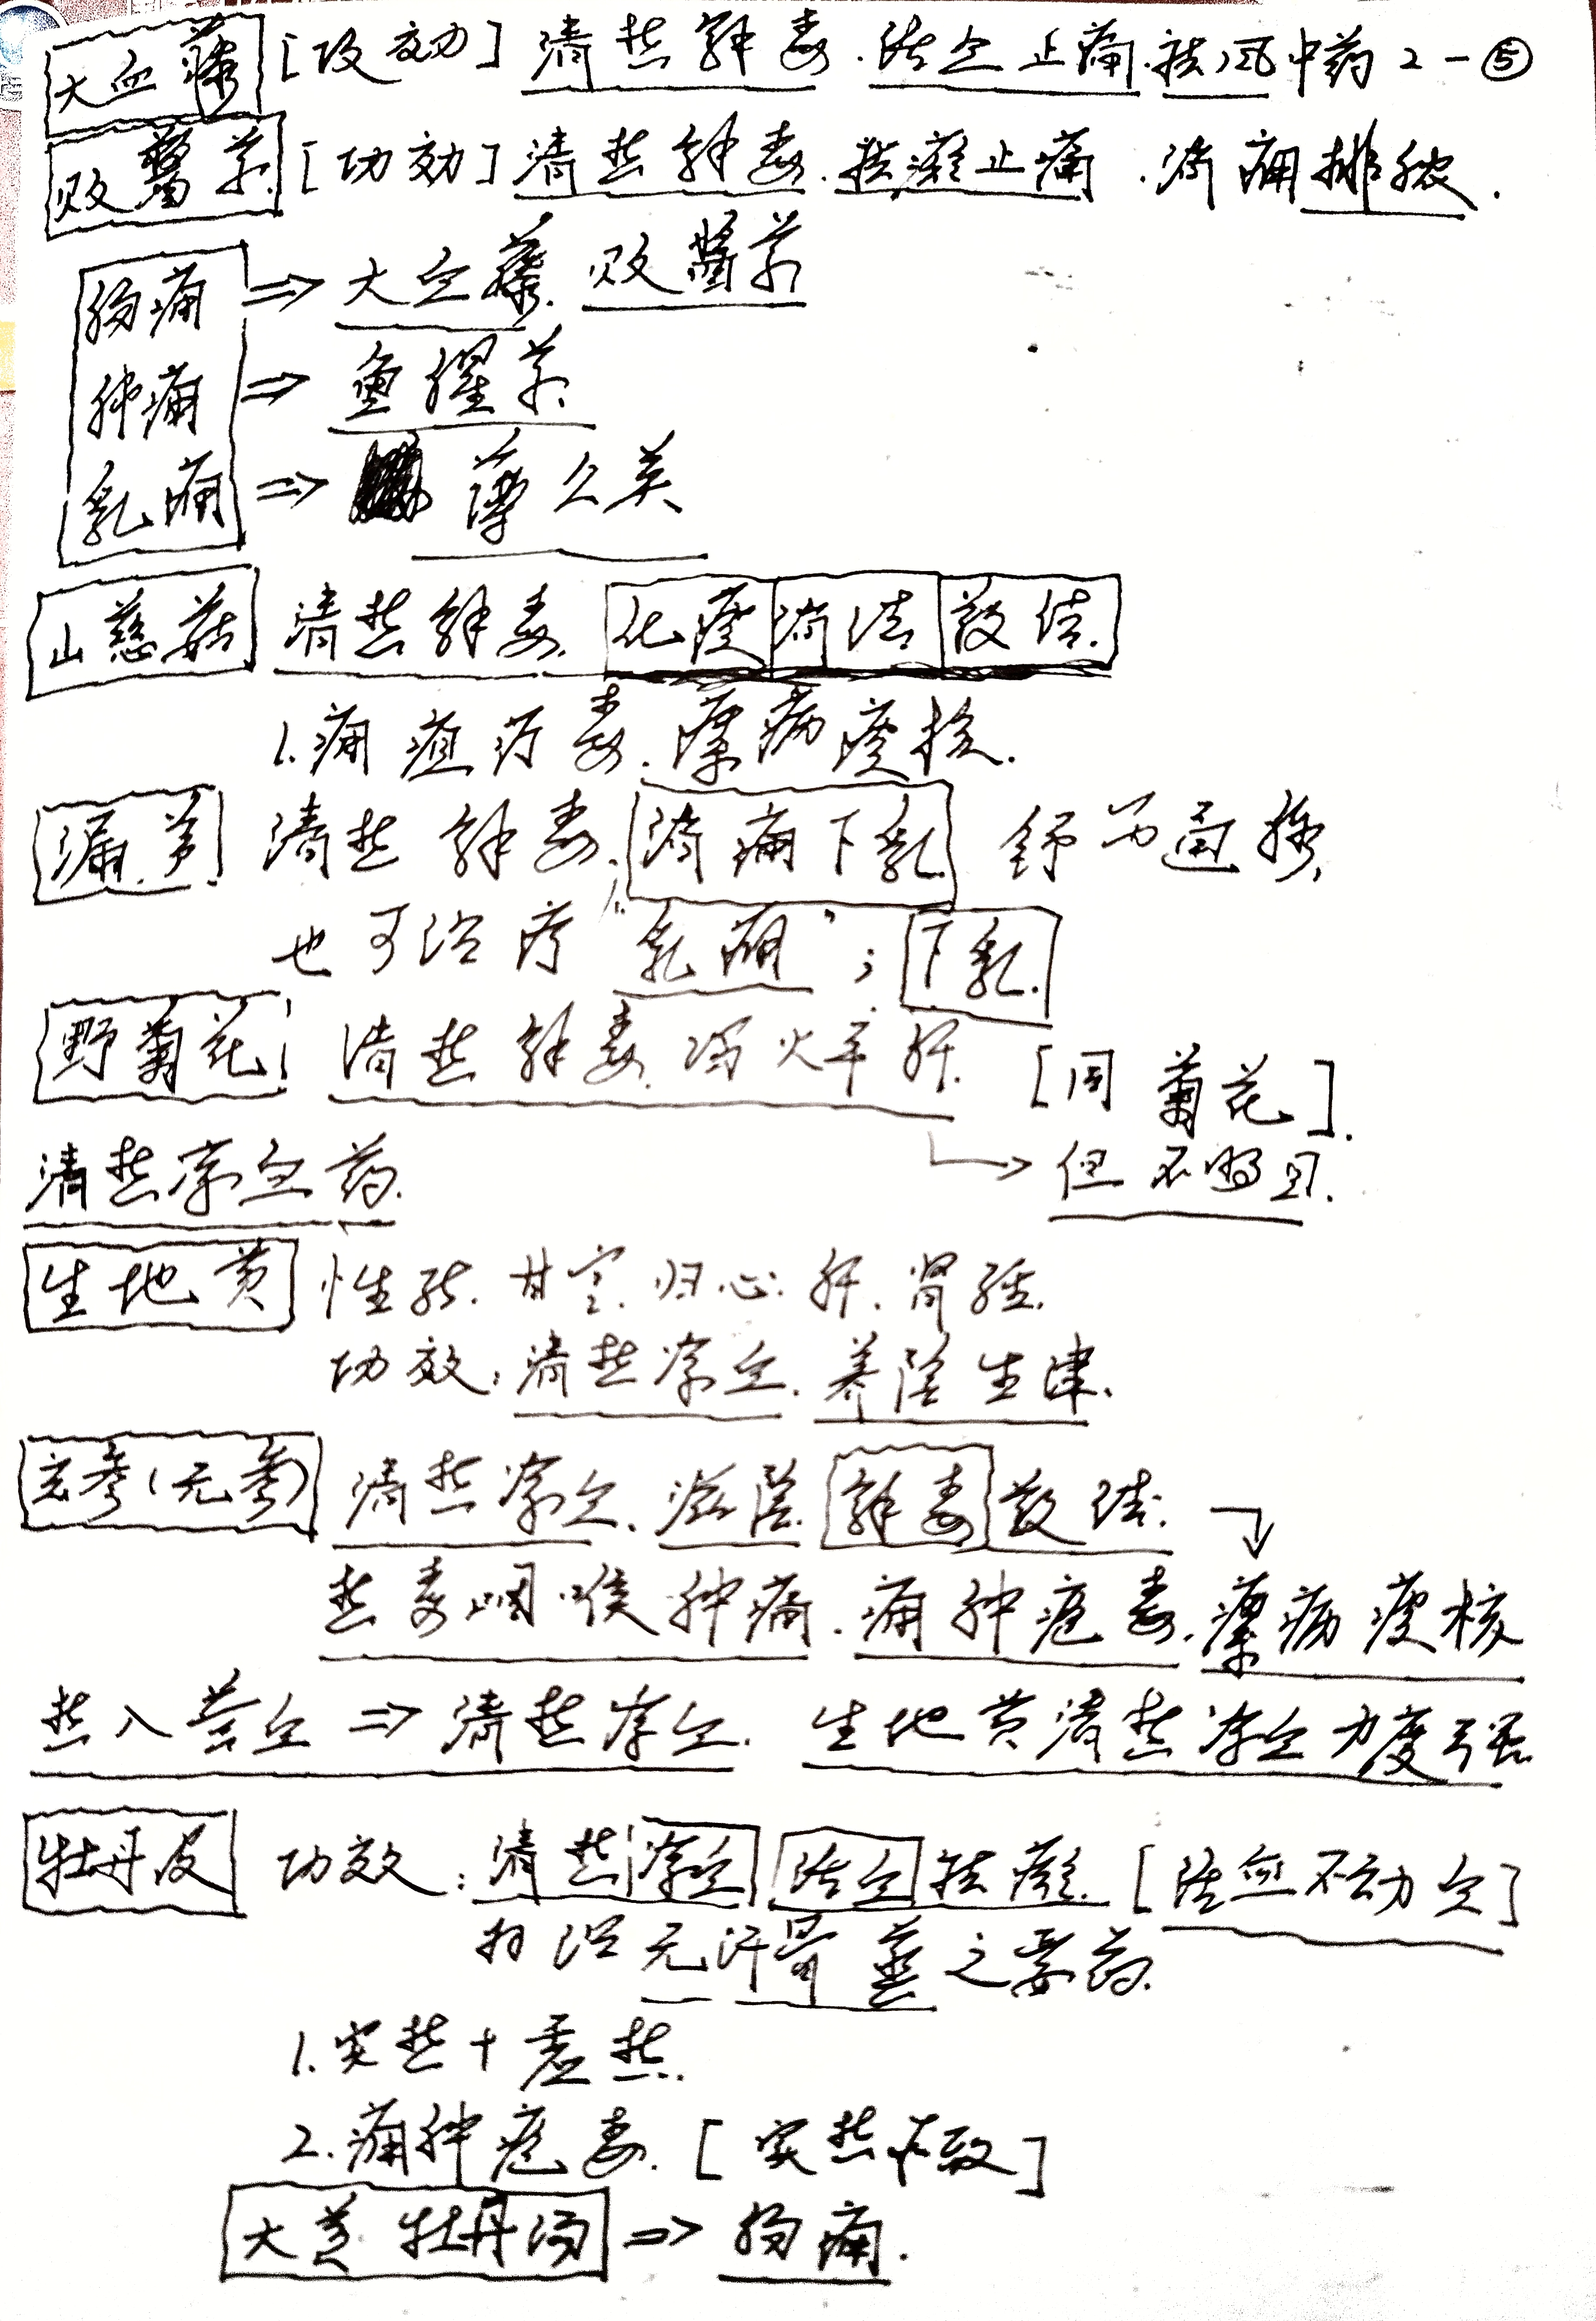 大血藤 [攻效功] 清热解毒.活血止痛.祛风 中药2-⑤
败酱草 [功効] 清热解毒.祛瘀止痛.消痈排脓.
肠痈 ⇒ 大血藤.败酱草
肿痈 ⇒ 鱼腥草.
乳痈 ⇒ 蒲公英
山慈菇 清热解毒.化痰消结散结.
1.痈疽疔毒.瘰疬痰核.
漏芦 清热解毒.消痈下乳 舒筋通脉.
也可治疗"乳痈";下乳.
野菊花 清热解毒.泻火平肝. [同菊花].
→但不明目.
清热凉血药.
生地黄 性能.甘寒.归心.肝.肾经.
功效:清热凉血.养阴生津.
玄参(元参) 清热凉血.滋阴.解毒散结.
热毒咽喉肿痛.痈肿疮毒.瘰疬痰核
热入营血 ⇒ 清热凉血. 生地黄清热凉血力度强.
牡丹皮 功效:清热凉血 活血祛瘀. [活血不动血]
为治无汗骨蒸之要药.
1.实热+虚热.
2.痈肿疮毒.[实热所致]
大黄牡丹汤 ⇒ 肠痈.